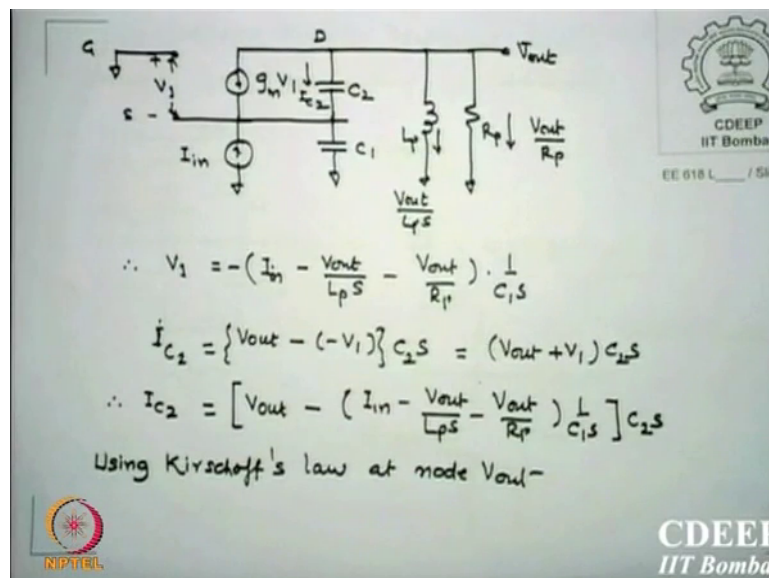 D
G
Vout
V1
gmV1
IC2
C2
S -
Iin
C1
Lp
Rp
Vout/Rp
Vout/LpS
CDEEP
IIT Bombay
EE 618 L____ / Sli
∴ V1 = -(Iin - Vout/LpS - Vout/Rp) · 1/C1S
IC2 = {Vout - (-V1)} C2S = (Vout + V1) C2S
∴ IC2 = [Vout - (Iin - Vout/LpS - Vout/Rp) 1/C1S] C2S
Using Kirschoff's law at node Vout-
NPTEL
CDEEP
IIT Bombay